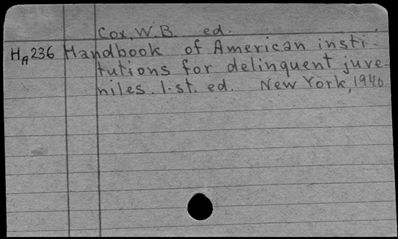 Cox, W.B. ed.
HA236 Handbook of American insti-
tutions for delinquent juve-
niles. 1.st. ed. New York, 1940